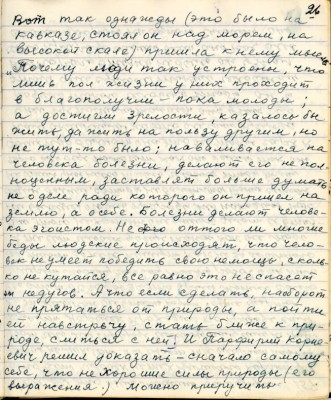 26
Вот так однажды (это было на
кавказе, стоял он над морем, на
высокой скале) пришла к нему мысль:
"Почему люди так устроены, что
лишь пол жизни у них проходит
в благополучии – пока молоды;
а достигли зрелости, казалось бы
жить, да жить на пользу другим, но
не тут-то было; наваливается на
человека болезни, делают его не пол-
ноценным, заставляет больше думать
не о деле ради которого он пришел на
землю, а о себе. Болезни делают челове-
ка эгоистом. Не от того ли многие
беды людские происходят, что чело-
век не умеет победить свою немощь, сколь-
ко не кутайся, все равно это не спасет
от недугов. А что если сделать, наоборот
не прятаться от природы, а пойти
ей навстречу, стать ближе к при-
роде, слиться с ней. И Парфирий Корне-
евич решил доказать – сначало самому
себе, что нехорошие силы природы (его
выражения.) можно приручить